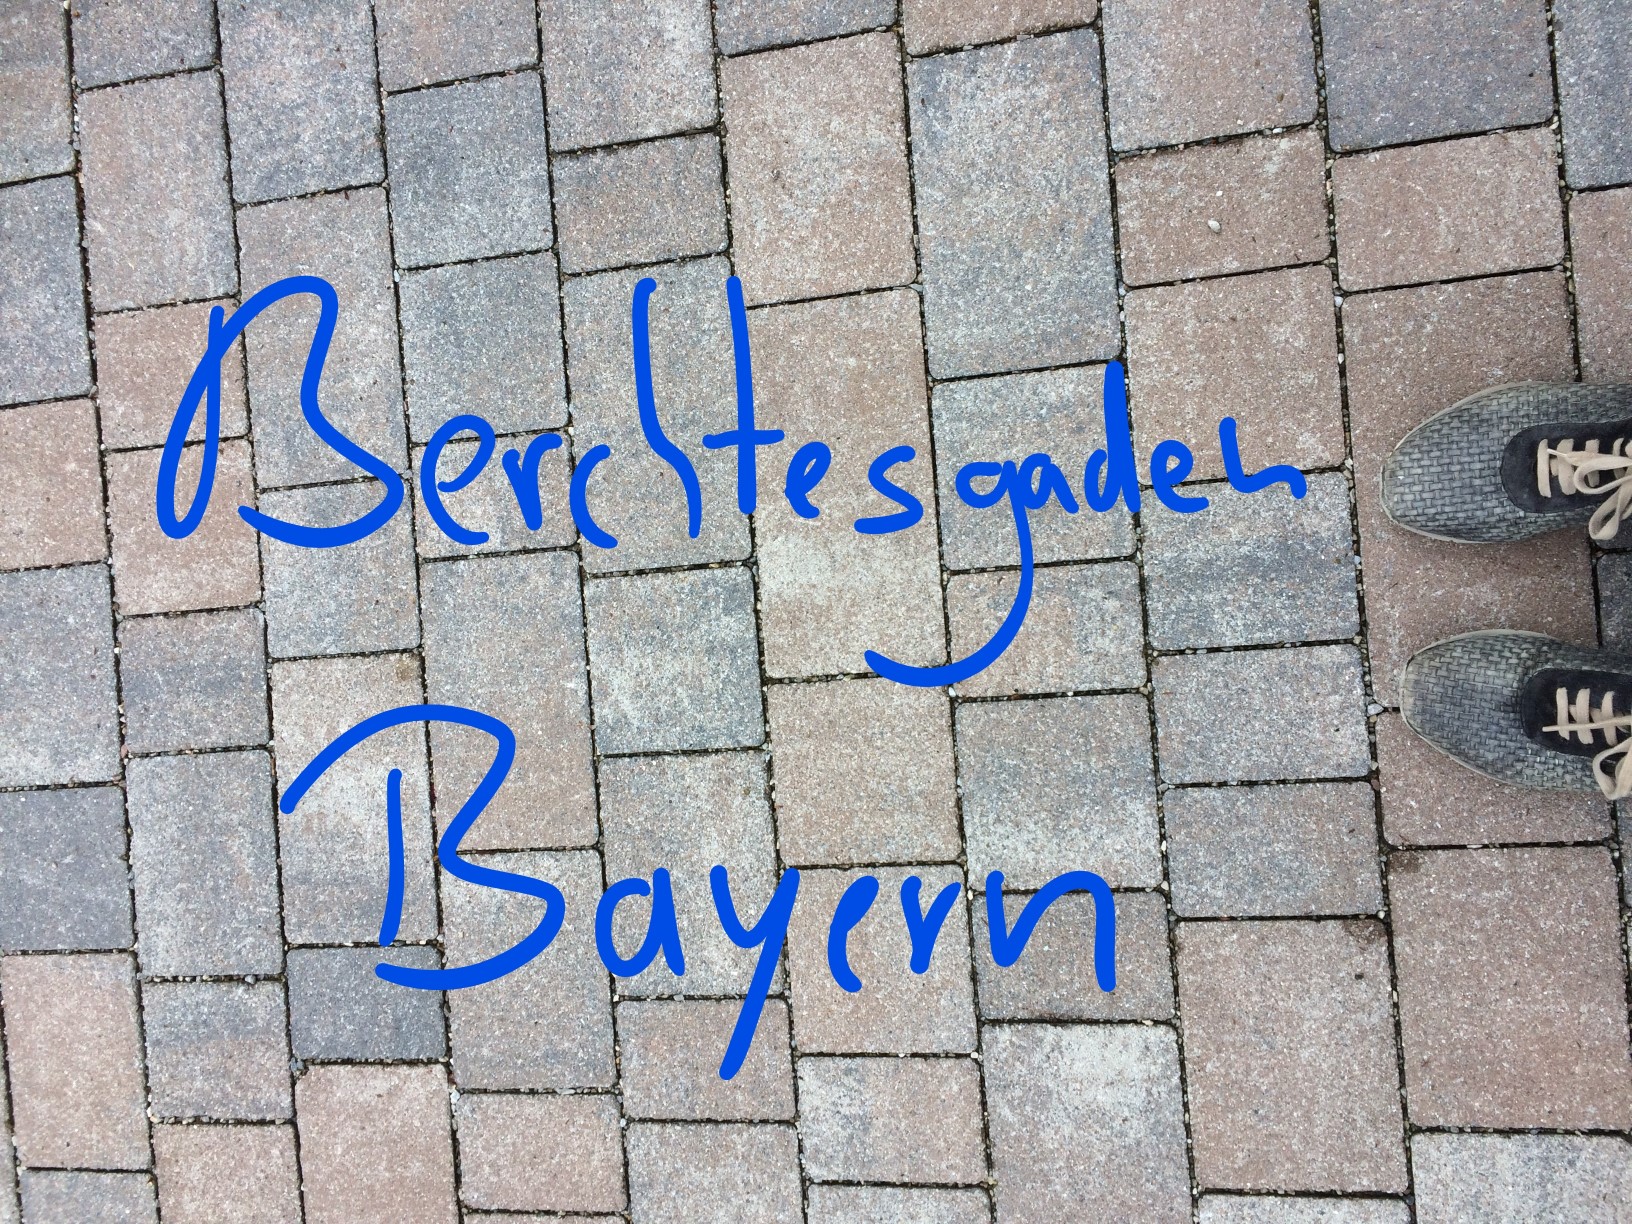 Berchtesgaden
Bayern